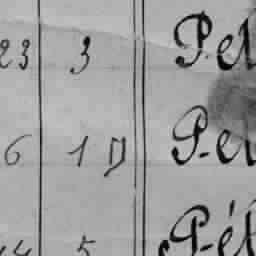 23 3 Pet
6 1 D Pet
14 5 Pét